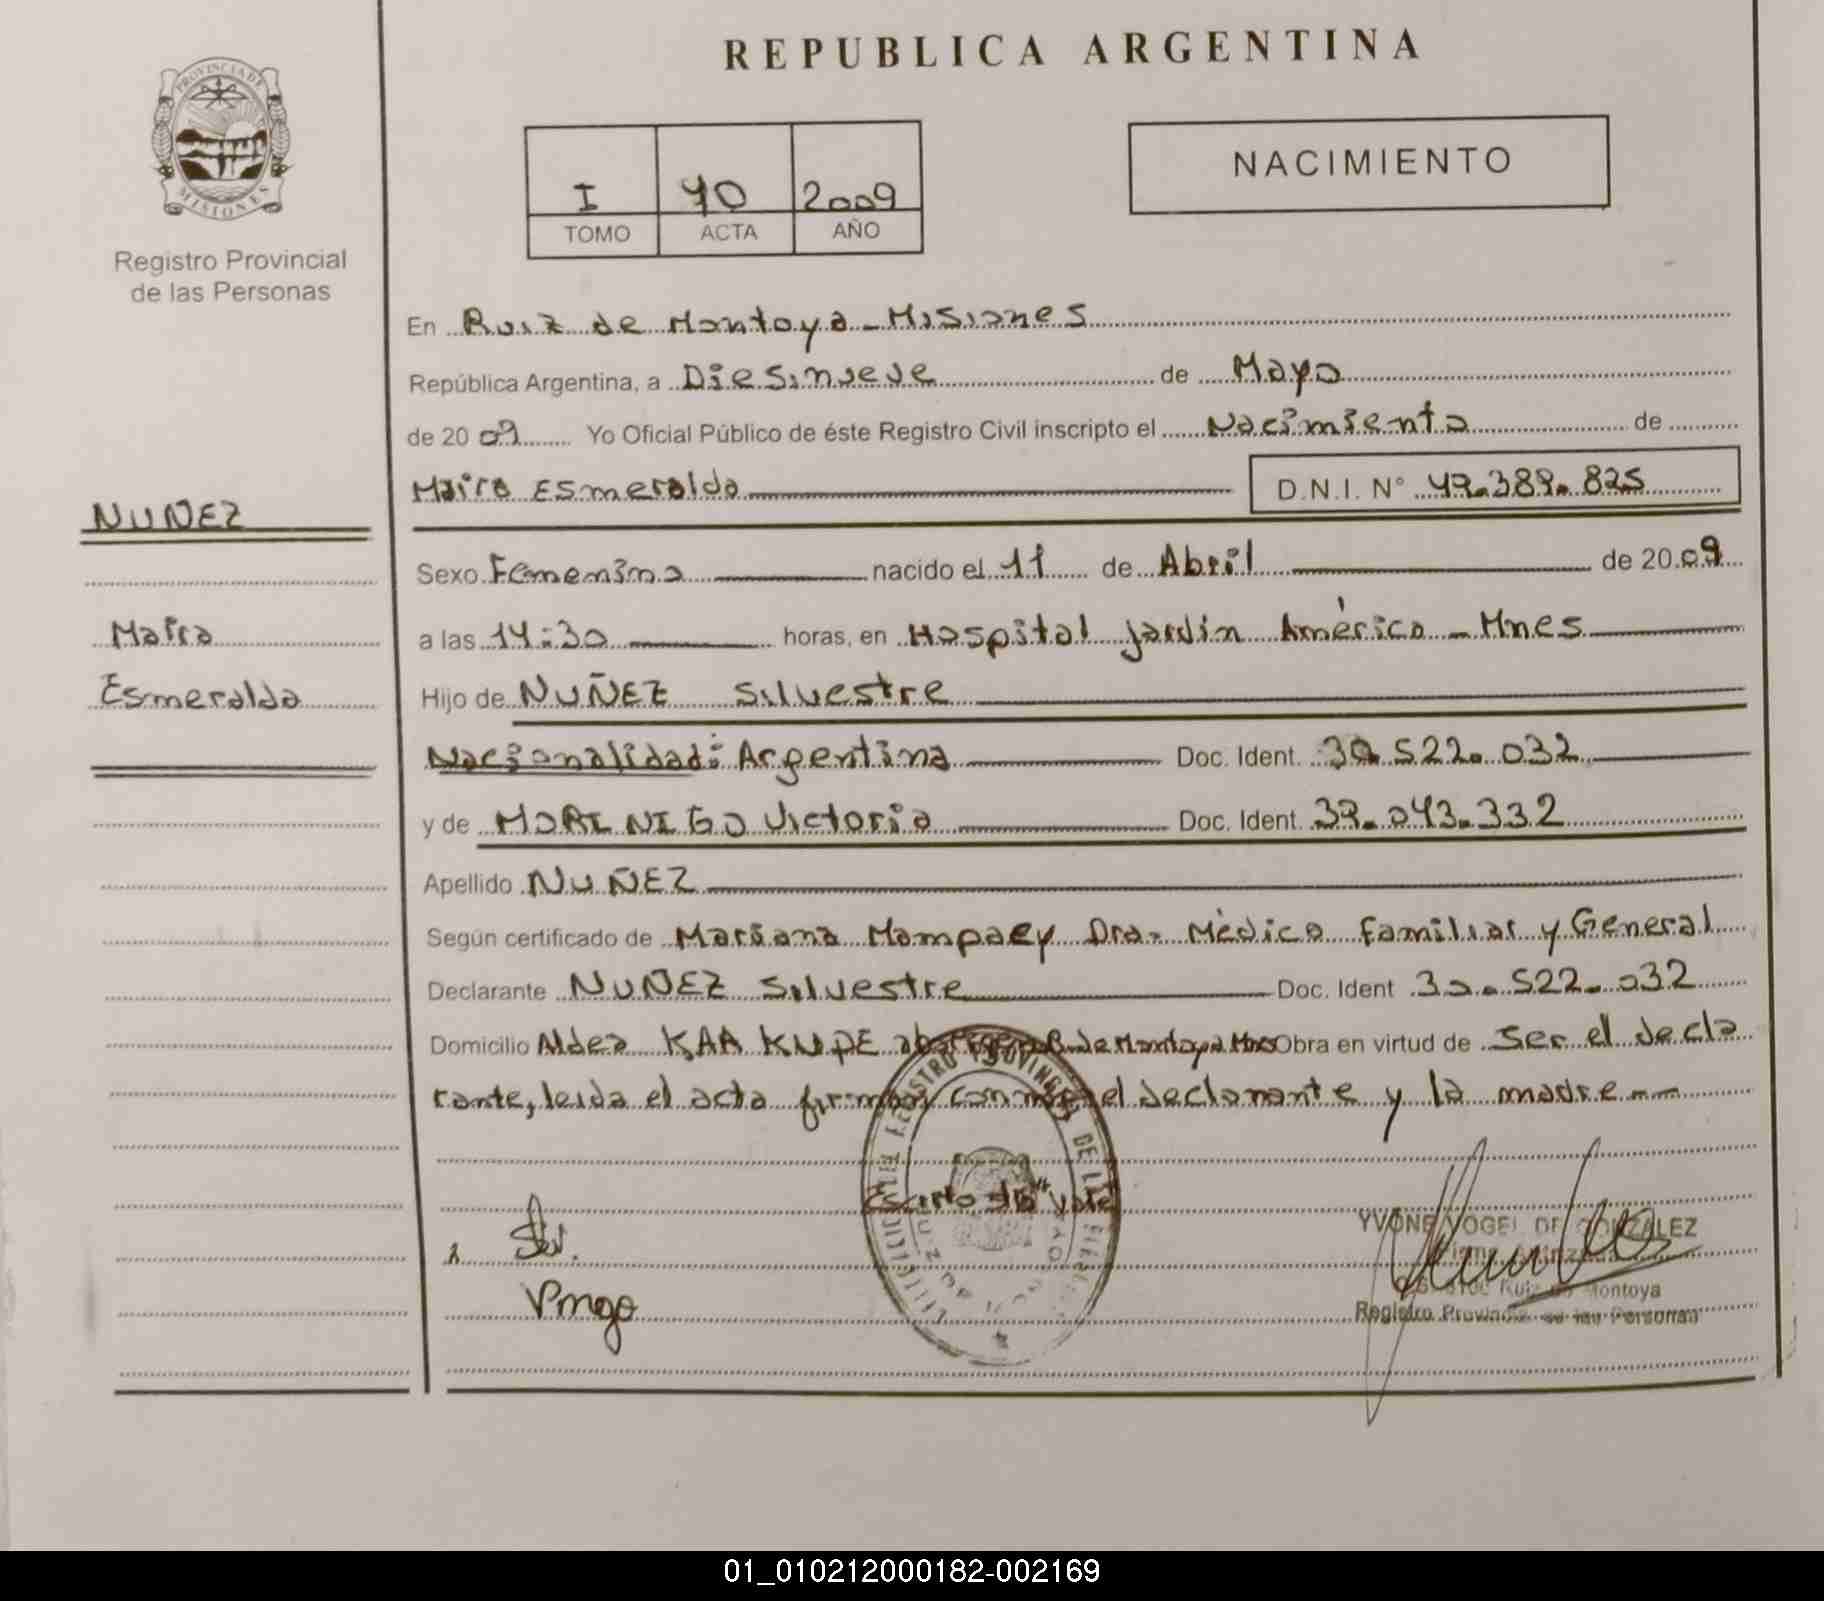 REPUBLICA ARGENTINA
PROVINCIA DE MISIONES
Registro Provincial
de las Personas
NACIMIENTO
I 40 2009
TOMO ACTA AÑO
En Ruiz de Montoya - Misiones
República Argentina, a Diesinueve de Mayo
de 2009 Yo Oficial Público de éste Registro Civil inscripto el Nacimiento de
Maira Esmeralda D.N.I. N° 49.389.825
NUÑEZ
Maira
Esmeralda
Sexo Femenino nacido el 11 de Abril de 2009
a las 14:30 horas, en Hospital Jardín América - Mnes
Hijo de NUÑEZ Silvestre
Nacionalidad: Argentina Doc. Ident. 30.522.032
y de MORINIGO Victoria Doc. Ident. 39.043.332
Apellido NUÑEZ
Según certificado de Mariana Mampaey Dra. Médico Familiar y General
Declarante NUÑEZ Silvestre Doc. Ident 30.522.032
Domicilio Aldea KAA KUPE R. de Montoya Mnes Obra en virtud de Ser el decla
rante, leida el acta firman con mi el declarante y la madre --
Vale
YVONE VOGEL DE GONZALEZ
Ruiz de Montoya
Registro Provincial de las Personas
01_010212000182-002169